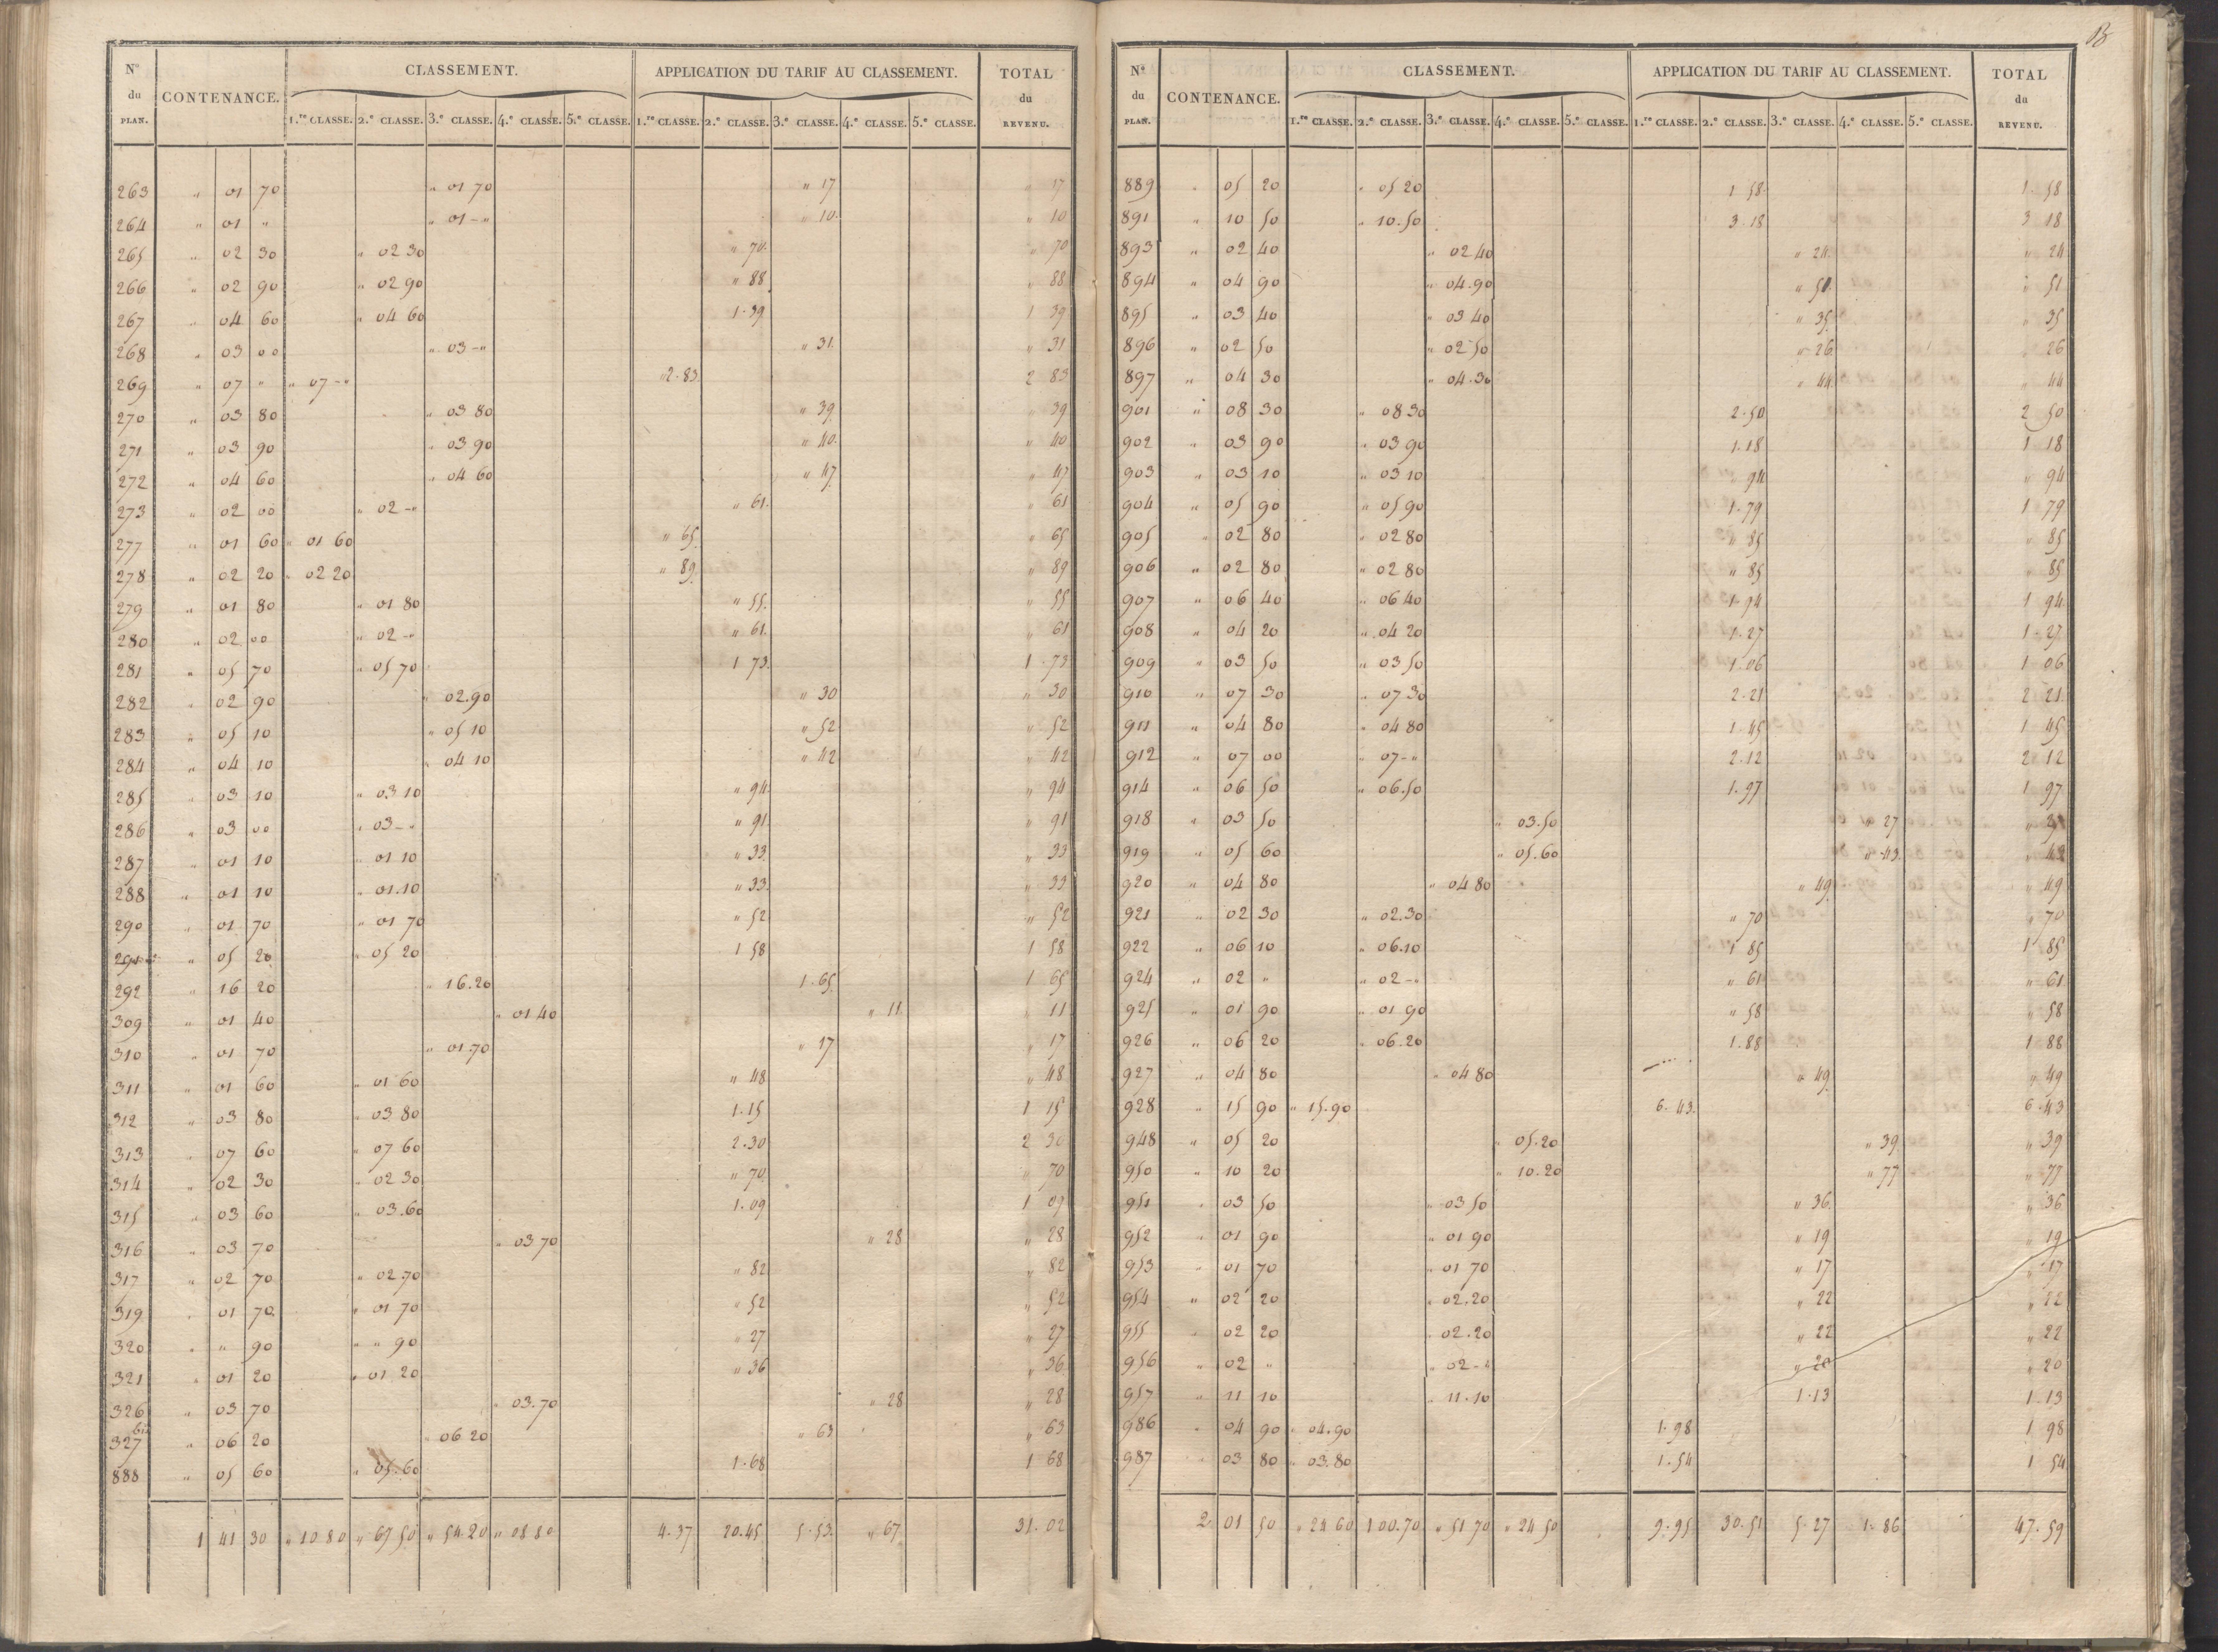 18
N.º du PLAN. CONTENANCE. CLASSEMENT. APPLICATION DU TARIF AU CLASSEMENT. TOTAL du REVENU.
1.re CLASSE. 2.e CLASSE. 3.e CLASSE. 4.e CLASSE. 5.e CLASSE. 1.re CLASSE. 2.e CLASSE. 3.e CLASSE. 4.e CLASSE. 5.e CLASSE.
263 " 01 70 " 01 70 " 17 " 17
264 " 01 " " 01 - " " 10 " 10
265 " 02 30 " 02 30 " 70 " 70
266 " 02 90 " 02 90 " 88 " 88
267 " 04 60 " 04 60 1.39 1 39
268 " 03 00 " 03 - " " 31 " 31
269 " 07 " " 07 - " 2.83 2 83
270 " 03 80 " 03 80 " 39 " 39
271 " 03 90 " 03 90 " 40 " 40
272 " 04 60 " 04 60 " 47 " 47
273 " 02 00 " 02 - " " 61 " 61
277 " 01 60 " 01 60 " 65 " 65
278 " 02 20 " 02 20 " 89 " 89
279 " 01 80 " 01 80 " 55 " 55
280 " 02 00 " 02 - " " 61 " 61
281 " 05 70 " 05 70 1 73 1 73
282 " 02 90 " 02.90 " 30 " 30
283 " 05 10 " 05 10 " 52 " 52
284 " 04 10 " 04 10 " 42 " 42
285 " 03 10 " 03 10 " 94 " 94
286 " 03 00 " 03 - " " 91 " 91
287 " 01 10 " 01 10 " 33 " 33
288 " 01 10 " 01.10 " 33 " 33
290 " 01 70 " 01 70 " 52 " 52
291 " 05 20 " 05 20 1 58 1 58
292 " 16 20 " 16.20 1.65 1 65
309 " 01 40 " 01 40 " 11 " 11
310 " 01 70 " 01.70 " 17 " 17
311 " 01 60 " 01 60 " 48 " 48
312 " 03 80 " 03 80 1.15 1 15
313 " 07 60 " 07 60 2.30 2 30
314 " 02 30 " 02 30 " 70 " 70
315 " 03 60 " 03.60 1.09 1 09
316 " 03 70 " 03 70 " 28 " 28
317 " 02 70 " 02.70 " 82 " 82
319 " 01 70 " 01 70 " 52 " 52
320 " " 90 " " 90 " 27 " 27
321 " 01 20 " 01 20 " 36 " 36
326 " 03 70 " 03.70 " 28 " 28
327 bis " 06 20 " 06 20 " 63 " 63
888 " 05 60 " 05.60 1.68 1 68
1 41 30 " 10 80 " 67 50 " 54.20 " 08 80 4.37 20.45 5.53 " 67 31.02
N.º du PLAN. CONTENANCE. CLASSEMENT. APPLICATION DU TARIF AU CLASSEMENT. TOTAL du REVENU.
1.re CLASSE. 2.e CLASSE. 3.e CLASSE. 4.e CLASSE. 5.e CLASSE. 1.re CLASSE. 2.e CLASSE. 3.e CLASSE. 4.e CLASSE. 5.e CLASSE.
889 " 05 20 " 05 20 1 58 1 58
891 " 10 50 " 10.50 3.18 3 18
893 " 02 40 " 02 40 " 24 " 24
894 " 04 90 " 04.90 " 51 " 51
895 " 03 40 " 03 40 " 35 " 35
896 " 02 50 " 02 50 " 26 " 26
897 " 04 30 " 04.30 " 44 " 44
901 " 08 30 " 08 30 2.50 2 50
902 " 03 90 " 03 90 1.18 1 18
903 " 03 10 " 03 10 " 94 " 94
904 " 05 90 " 05 90 1.79 1 79
905 " 02 80 " 02 80 " 85 " 85
906 " 02 80 " 02 80 " 85 " 85
907 " 06 40 " 06 40 1.94 1 94
908 " 04 20 " 04 20 1.27 1 27
909 " 03 50 " 03 50 1.06 1 06
910 " 07 30 " 07 30 2.21 2 21
911 " 04 80 " 04 80 1.45 1 45
912 " 07 00 " 07 - " 2.12 2 12
914 " 06 50 " 06.50 1.97 1 97
918 " 03 50 " 03.50 " 27 " 27
919 " 05 60 " 05.60 " 43 " 43
920 " 04 80 " 04 80 " 49 " 49
921 " 02 30 " 02.30 " 70 " 70
922 " 06 10 " 06.10 1 85 1 85
924 " 02 " " 02 - " " 61 " 61
925 " 01 90 " 01 90 " 58 " 58
926 " 06 20 " 06.20 1.88 1 88
927 " 04 80 " 04 80 " 49 " 49
928 " 15 90 " 15.90 6.43 6.43
948 " 05 20 " 05.20 " 39 " 39
950 " 10 20 " 10.20 " 77 " 77
951 " 03 50 " 03 50 " 36 " 36
952 " 01 90 " 01 90 " 19 " 19
953 " 01 70 " 01 70 " 17 " 17
954 " 02 20 " 02.20 " 22 " 22
955 " 02 20 " 02.20 " 22 " 22
956 " 02 " " 02 - " " 20 " 20
957 " 11 10 " 11.10 1.13 1.13
986 " 04 90 " 04.90 1.98 1 98
987 " 03 80 " 03.80 1.54 1 54
2 01 50 " 24 60 1 00.70 " 51 70 " 24 50 9.95 30.51 5.27 1.86 47.59